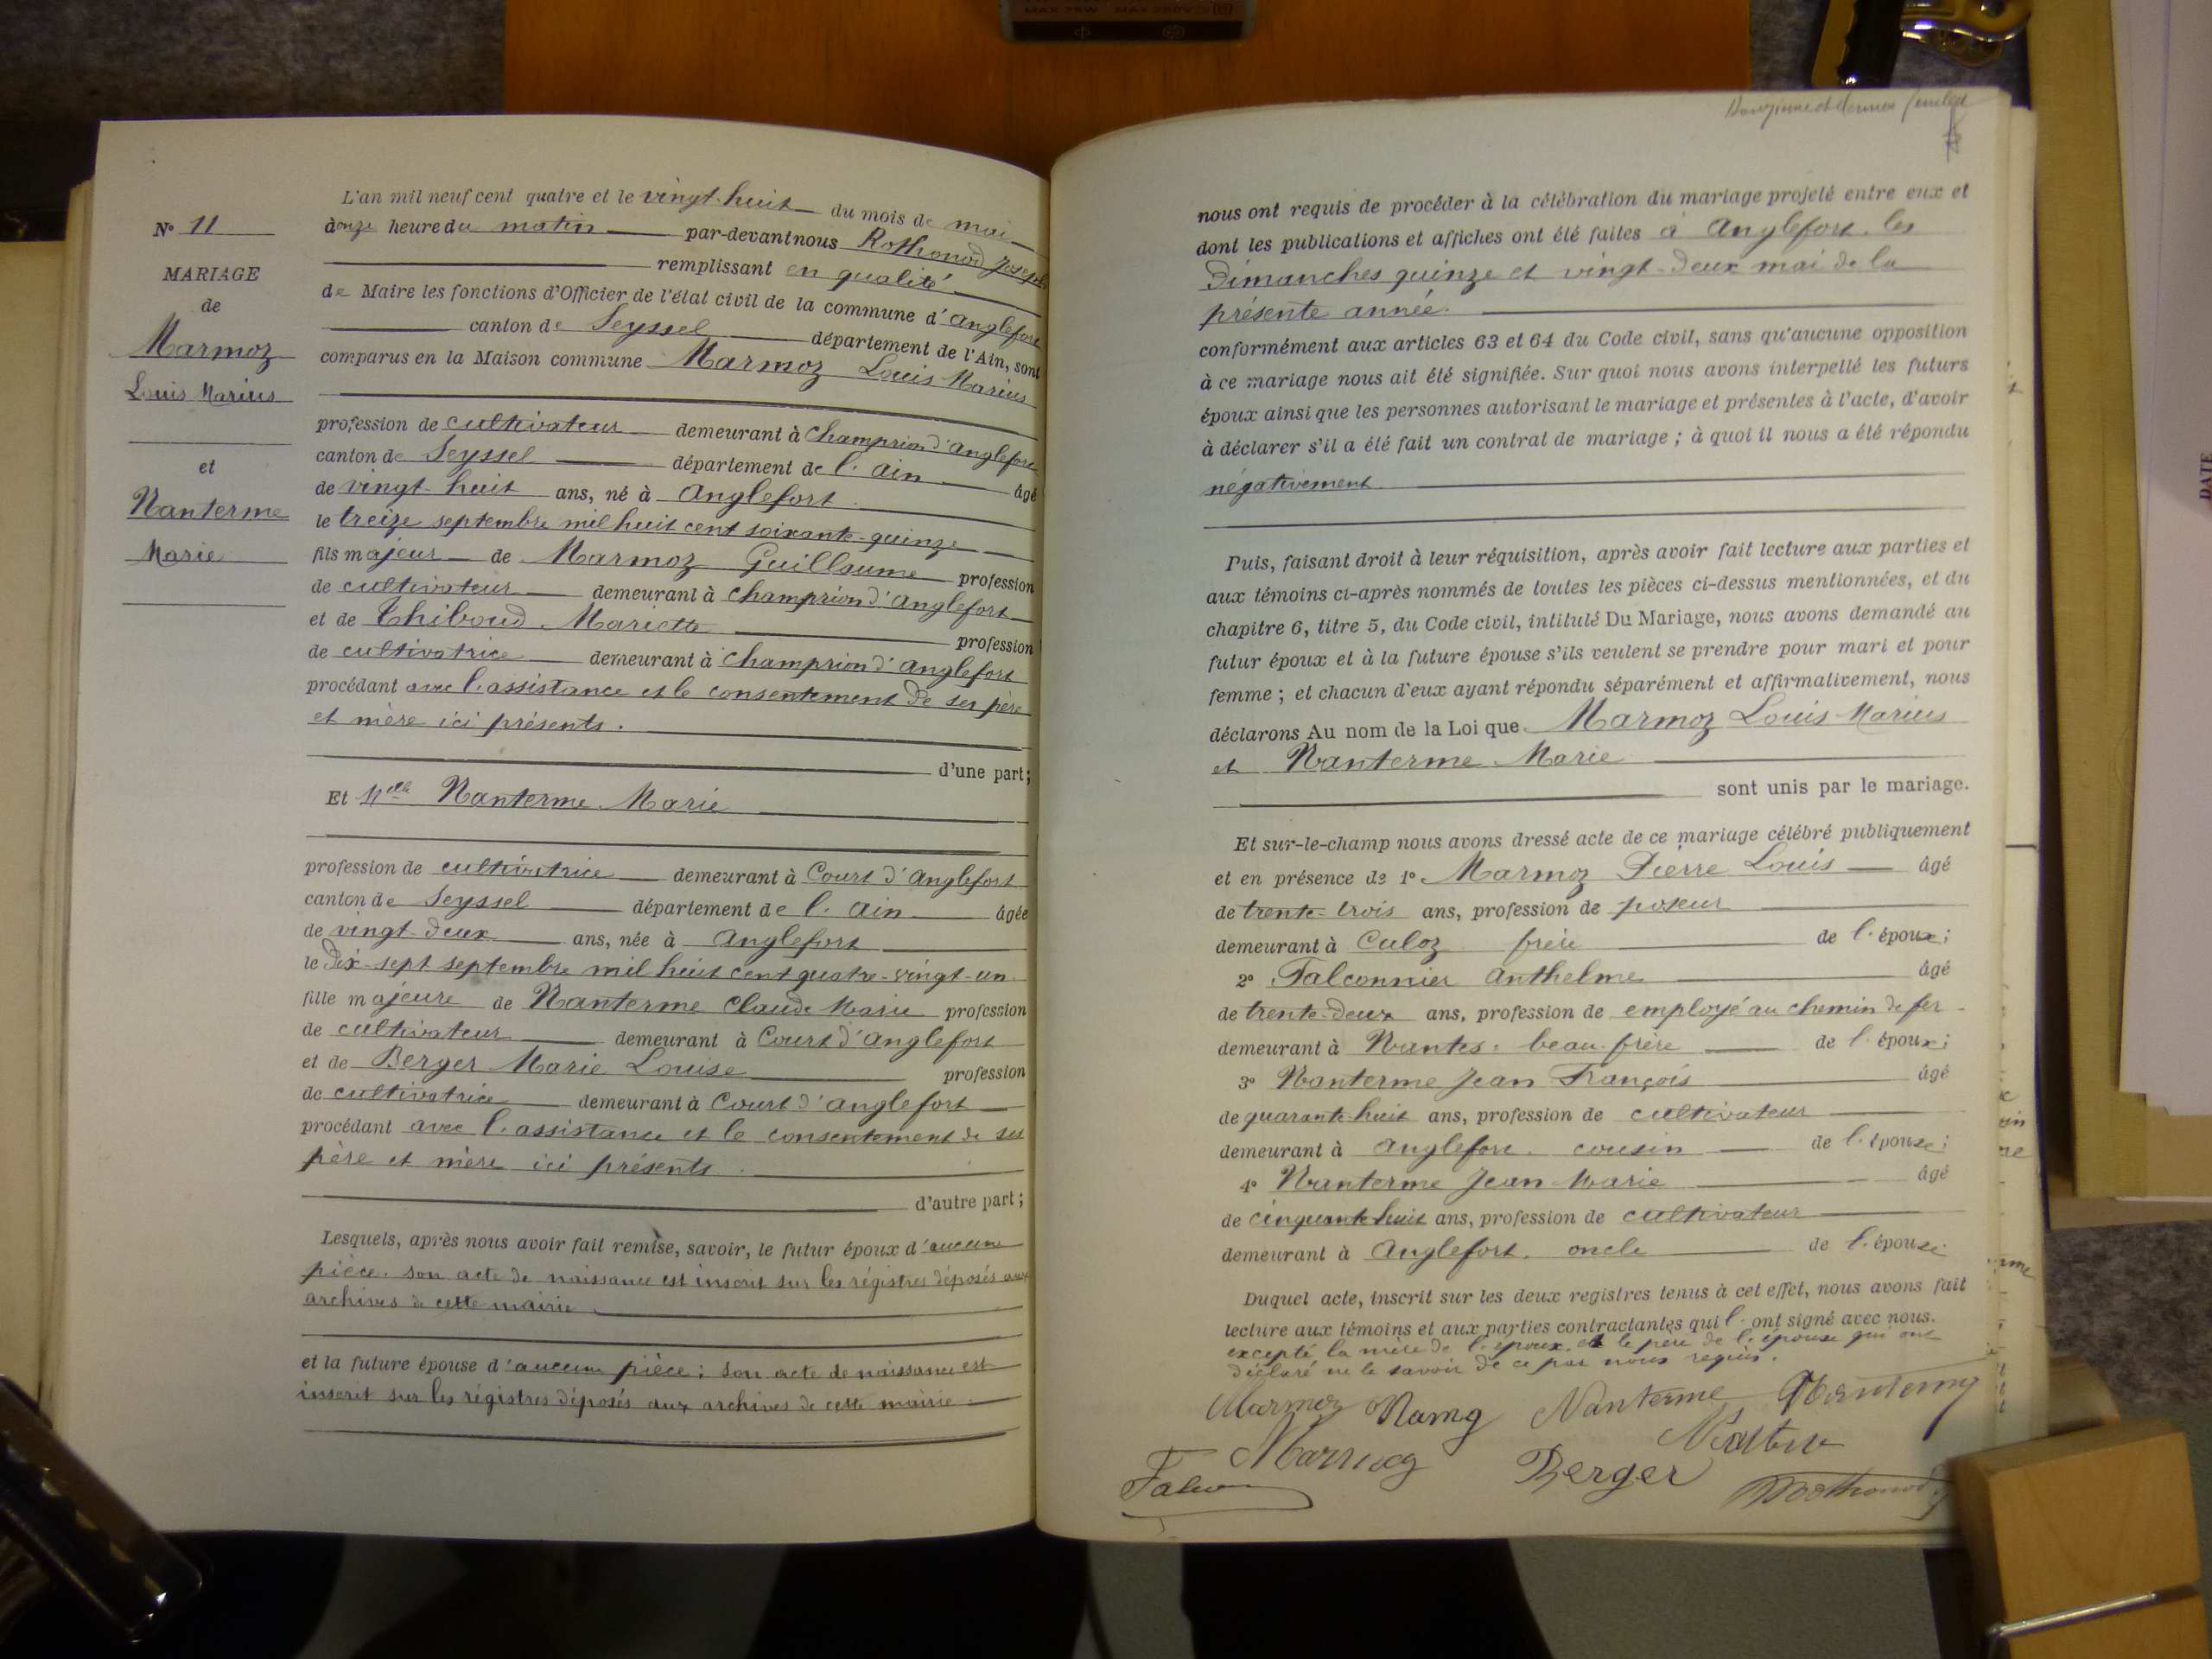 N° 11
MARIAGE
de
Marmoz
Louis Marius
et
Nanterme
Marie
L'an mil neuf cent quatre et le vingt-huit du mois de mai
à onze heure du matin par-devant nous Rothonod Joseph
remplissant en qualité
de Maire les fonctions d'Officier de l'état civil de la commune d'Anglefort
canton de Seyssel département de l'Ain, sont
comparus en la Maison commune Marmoz Louis Marius
profession de cultivateur demeurant à Champrion d'Anglefort
canton de Seyssel département de l'Ain âgé
de vingt-huit ans, né à Anglefort
le treize septembre mil huit cent soixante-quinze
fils majeur de Marmoz Guillaume profession
de cultivateur demeurant à Champrion d'Anglefort
et de Thiboud Mariette profession
de cultivatrice demeurant à Champrion d'Anglefort
procédant avec l'assistance et le consentement de ses père
et mère ici présents.
d'une part;
Et Melle Nanterme Marie
profession de cultivatrice demeurant à Court d'Anglefort
canton de Seyssel département de l'Ain âgée
de vingt-deux ans, née à Anglefort
le dix-sept septembre mil huit cent quatre-vingt-un
fille majeure de Nanterme Claude Marie profession
de cultivateur demeurant à Court d'Anglefort
et de Berger Marie Louise profession
de cultivatrice demeurant à Court d'Anglefort
procédant avec l'assistance et le consentement de ses
père et mère ici présents.
d'autre part;
Lesquels, après nous avoir fait remise, savoir, le futur époux d'aucune
pièce. son acte de naissance est inscrit sur les régistres déposés aux
archives de cette mairie
et la future épouse d'aucune pièce; son acte de naissance est
inscrit sur les régistres déposés aux archives de cette mairie.
nous ont requis de procéder à la célébration du mariage projeté entre eux et
dont les publications et affiches ont été faites à Anglefort les
dimanches quinze et vingt-deux mai de la
présente année.
conformément aux articles 63 et 64 du Code civil, sans qu'aucune opposition
à ce mariage nous ait été signifiée. Sur quoi nous avons interpellé les futurs
époux ainsi que les personnes autorisant le mariage et présentes à l'acte, d'avoir
à déclarer s'il a été fait un contrat de mariage; à quoi il nous a été répondu
négativement
Puis, faisant droit à leur réquisition, après avoir fait lecture aux parties et
aux témoins ci-après nommés de toutes les pièces ci-dessus mentionnées, et du
chapitre 6, titre 5, du Code civil, intitulé Du Mariage, nous avons demandé au
futur époux et à la future épouse s'ils veulent se prendre pour mari et pour
femme; et chacun d'eux ayant répondu séparément et affirmativement, nous
déclarons Au nom de la Loi que Marmoz Louis Marius
et Nanterme Marie
sont unis par le mariage.
Et sur-le-champ nous avons dressé acte de ce mariage célébré publiquement
et en présence de 1° Marmoz Pierre Louis âgé
de trente-trois ans, profession de poseur
demeurant à Culoz frère de l'époux;
2° Falconnier Anthelme âgé
de trente-deux ans, profession de employé au chemin de fer
demeurant à Nantes. beau-frère de l'époux;
3° Nanterme Jean François âgé
de quarante-huit ans, profession de cultivateur
demeurant à Anglefort. cousin de l'épouse;
4° Nanterme Jean Marie âgé
de cinquante-huit ans, profession de cultivateur
demeurant à Anglefort. oncle de l'épouse
Duquel acte, inscrit sur les deux registres tenus à cet effet, nous avons fait
lecture aux témoins et aux parties contractantes qui l'ont signé avec nous.
excepté la mère de l'époux et le père de l'épouse qui ont
déclaré ne le savoir de ce par nous requis.
Marmoz Nanterme
Berger
DATE